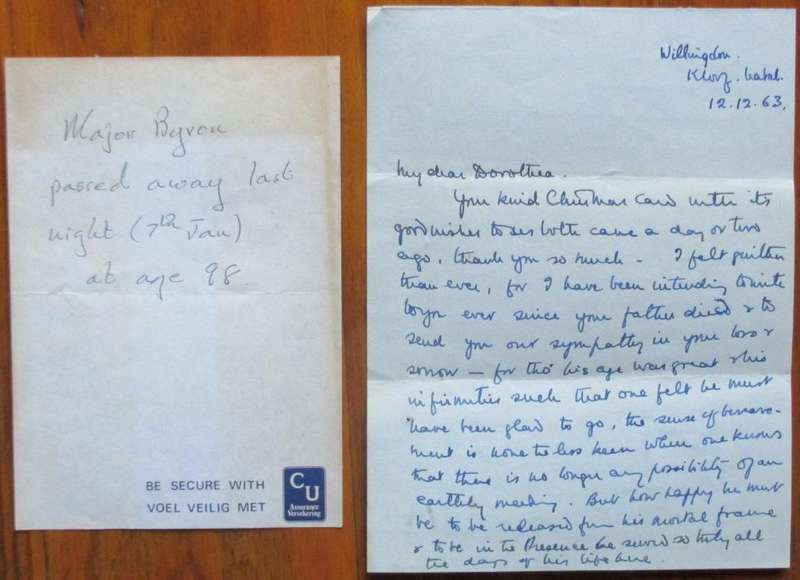 Major Byron
passed away last
night (7th Jan)
at age 98.
BE SECURE WITH
VOEL VEILIG MET
CU
Assurance
Versekering
Willingdon.
Kloof. Natal.
12.12.63.
My dear Dorothea.
Your kind Christmas Card with its
good wishes to us both came a day or two
ago, thank you so much - I felt guiltier
than ever, for I have been intending to write
to you ever since your father died & to
send you our sympathy in your loss &
sorrow - for tho' his age was great & his
infirmities such that one felt he must
have been glad to go, the sense of bereave-
ment is none the less keen when one knows
that there is no longer any possibility of an
earthly meeting. But how happy he must
be to be released from his mortal frame
& to be in the Presence he served so truly all
the days of his life here.